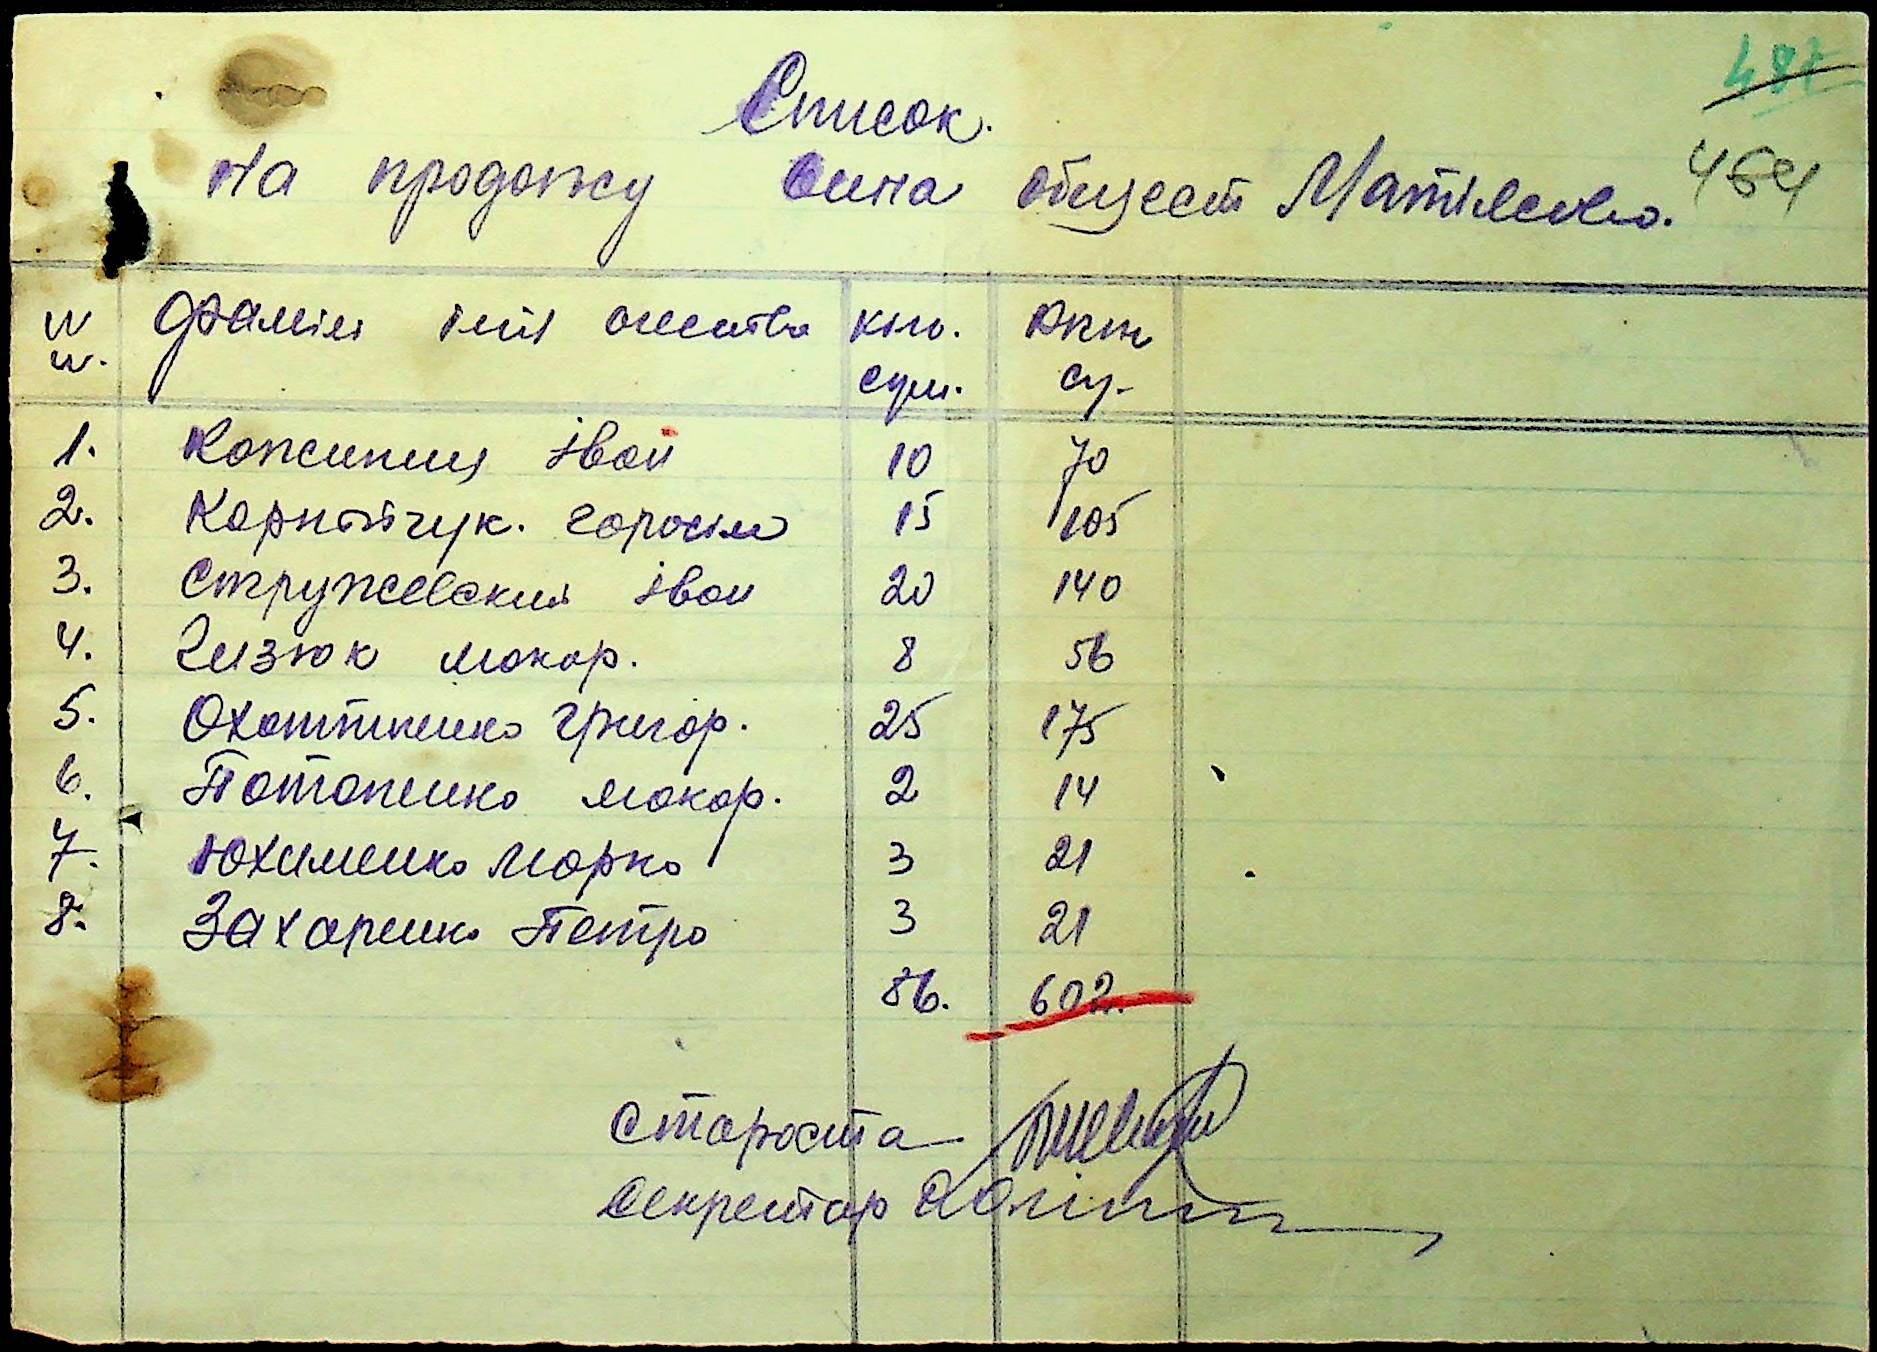 487
Список.
На продажу Вина общест Матіясово. 464
N фамілія імя отчества кіл. 
сум. су.
1. Кожити Іван 10 70
2. Карпойчук. Гарасім 15 105
3. Стружевский Іван 20 140
4. Гизюк Макар. 8 56
5. Охотненко Григор. 25 175
6. Потопенко Макар. 2 14
7. Юхименко Марко 3 21
8. Захаренко Петро 3 21
86. 602.
Староста
Секретар